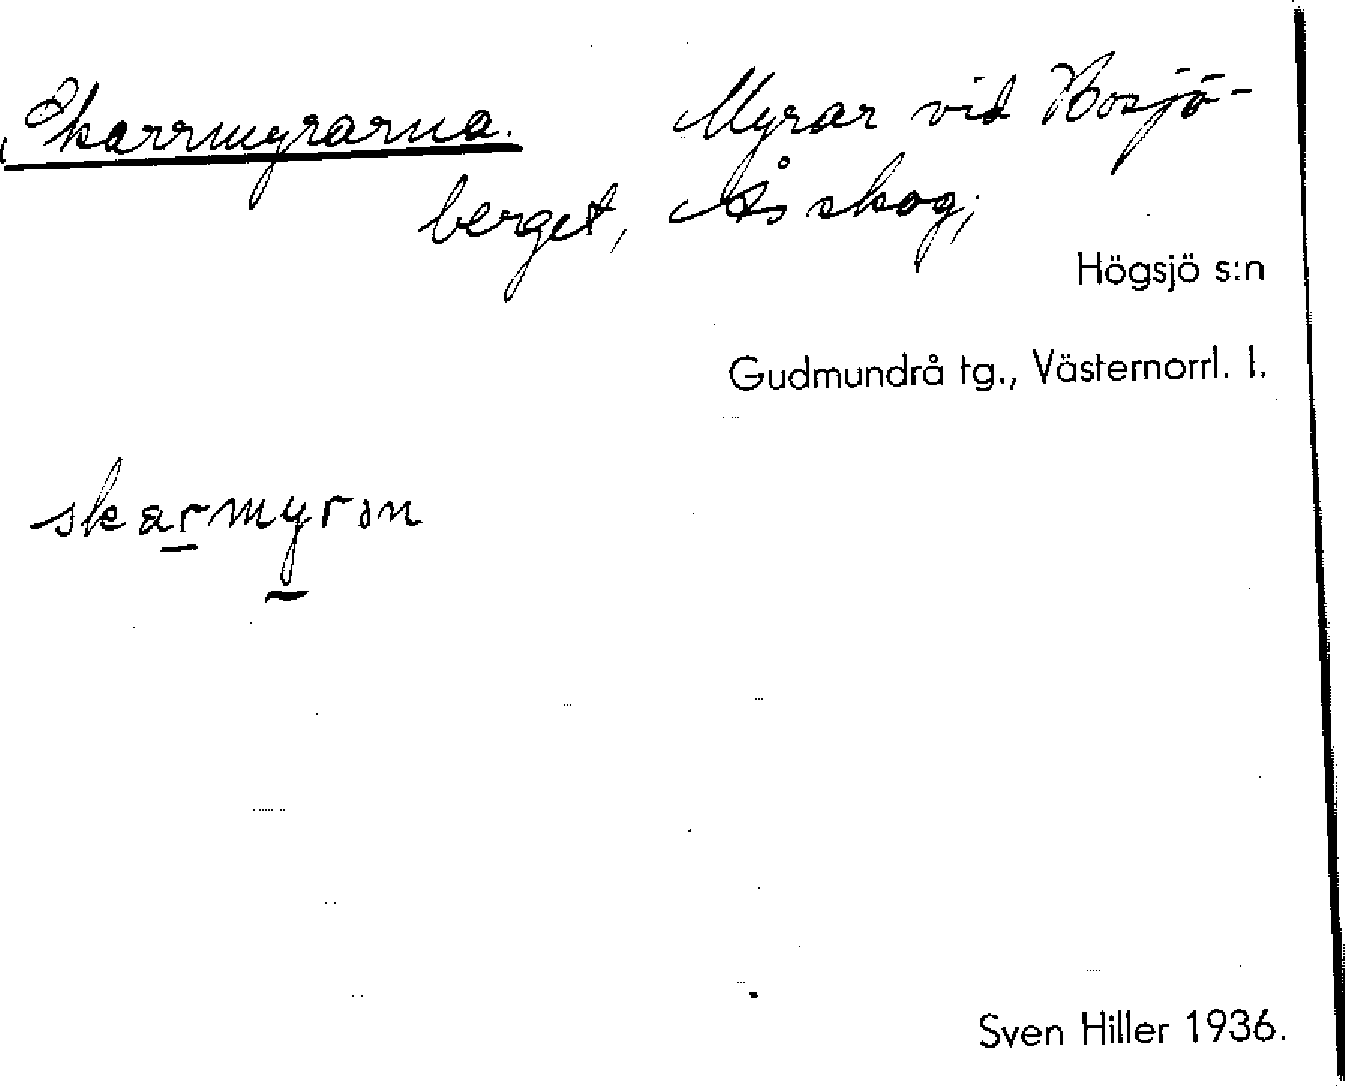 Skarrmyrarna. Myrar vid Hosjö-
berget, Ås skog;
Högsjö s:n
Gudmundrå tg., Västernorrl. l.
skarmyrɔn
Sven Hiller 1936.